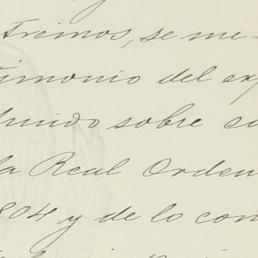 y
tremos, se me-
timonio del exp
truido sobre su
la Real Orden
804 y de lo con